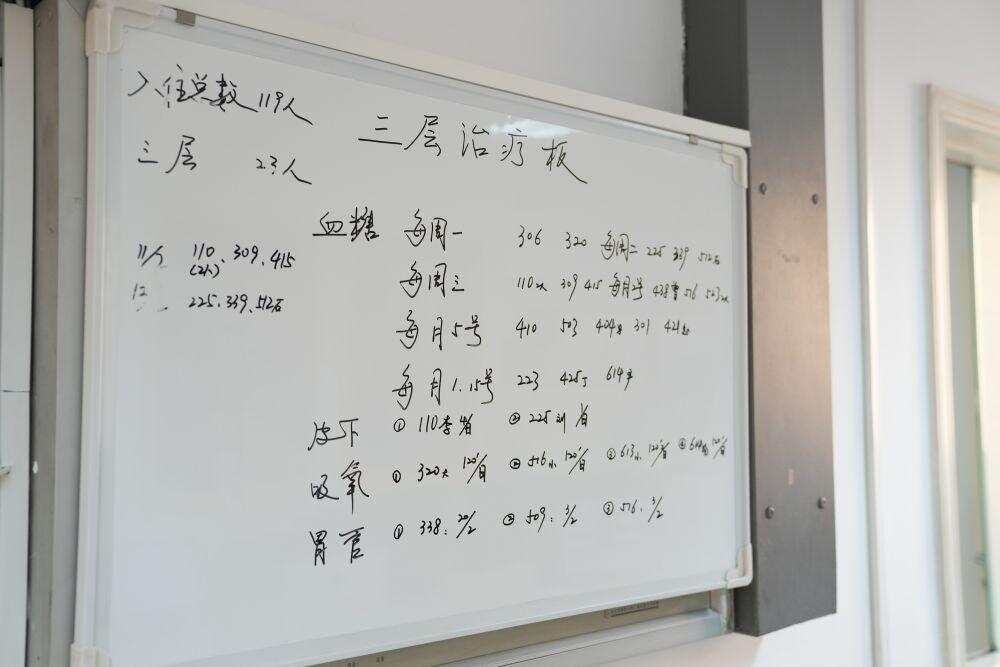 入住总数 119人
三层 23人
三层治疗板
11/ 110(2人). 309. 415
12 225. 339. 512石
血糖 每周一 306 320 每周二 225 339 512石
每周三 110 309 415 每月2号 438曹 516 503
每月5号 410 503 404 301 421
每月1.15号 223 425 614
皮下 ① 110李 ② 225刘
吸氧 ① 320大 120'/ ② 516小 120'/ ③ 613小 120'/ ④ 120'/
胃管 ① 338: 20/2 ② 509: 3/2 ③ 516. 3/2